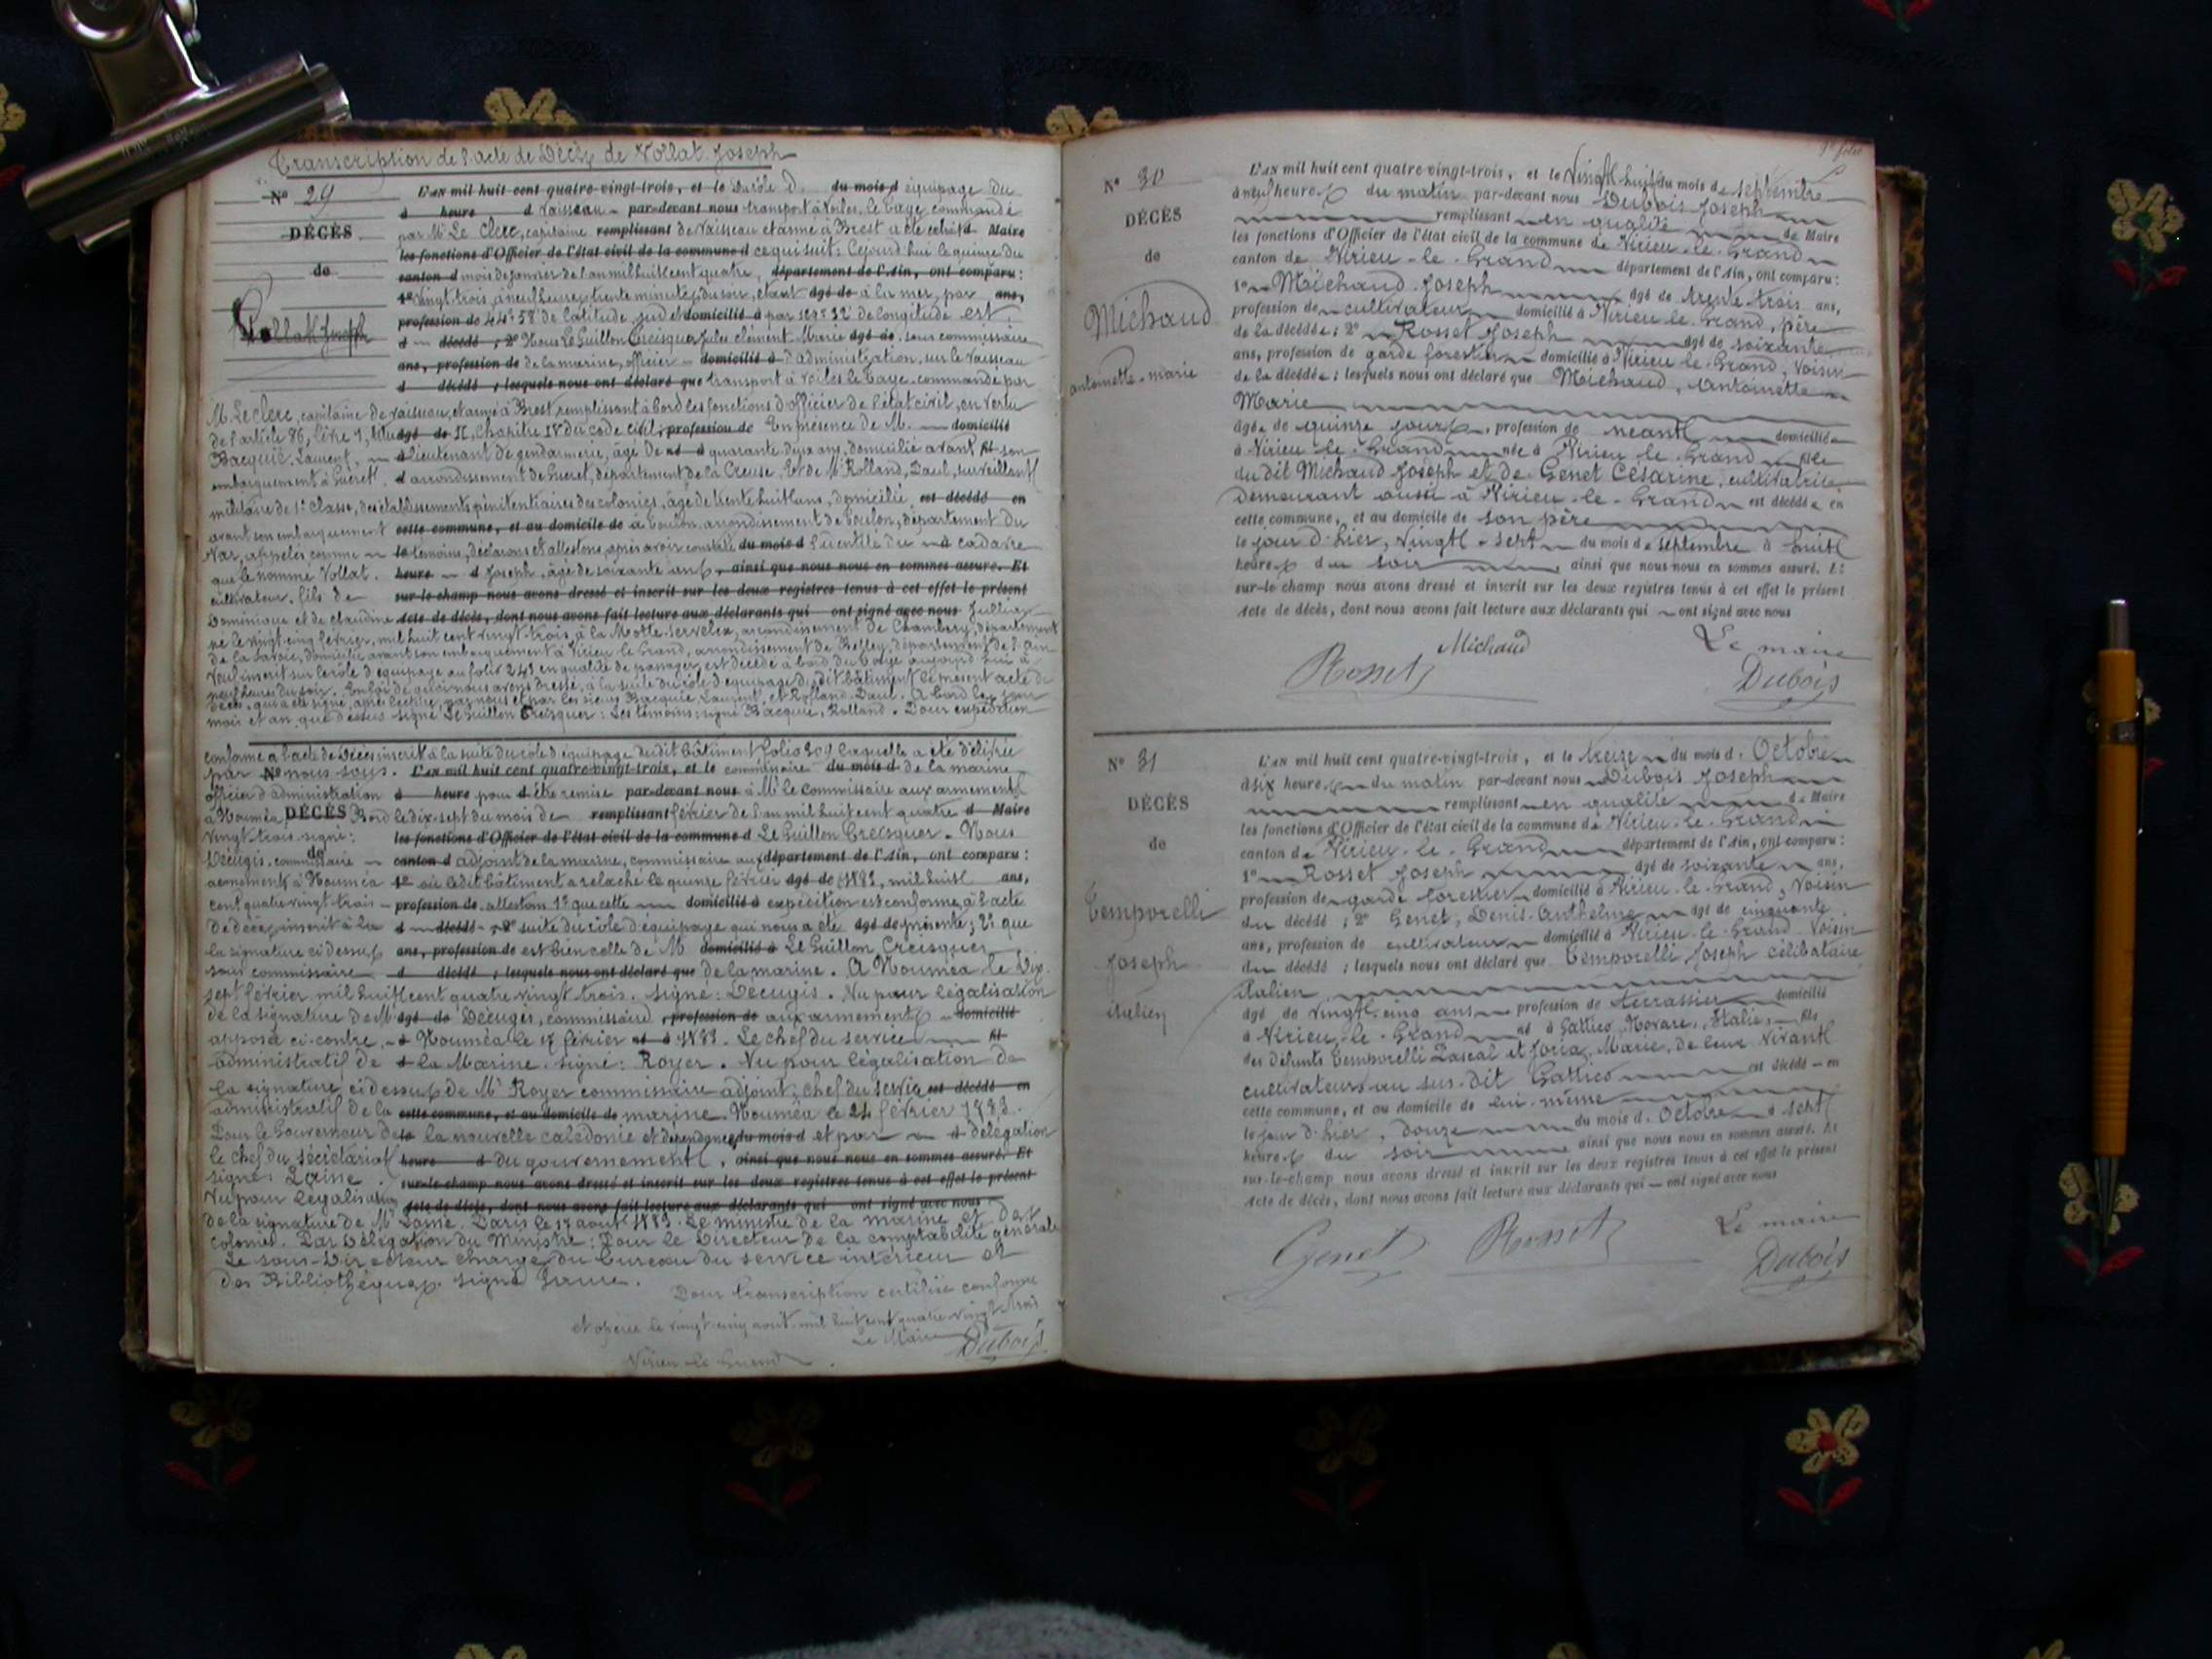 Transcription de l'acte de Décès de Vollat Joseph
N° 29
DÉCÈS
de
Vollat Joseph
L'AN mil huit cent quatre-vingt-trois, et le Du rôle d du mois d équipage du
à heure d Vaisseau par-devant nous transport à voiles, le Tage, commandé
par Mr Le Clerc, capitaine remplissant de Vaisseau et armé à Brest a été extrait Maire
les fonctions d'Officier de l'état civil de la commune d ce qui suit: Cejourd'hui le quinze du
canton d mois de janvier de l'an mil huit cent quatre, département de l'Ain, ont comparu:
1° vingt trois, à neuf heures trente minutes du soir, étant âgé de à la mer, par ans,
profession de 44° 58' de latitude sud et domicilié à par de longitude est
d décédé ; 2° Nous Le Guillon Creisquer Jules Clément Marie âgé de sous commissaire
ans, profession de de la marine, officier domicilié à d'administration, sur le vaisseau
d décédé ; lesquels nous ont déclaré que transport à voiles le Tage commandé par
M. Le Clerc, capitaine de vaisseau, et armé à Brest, remplissant à bord les fonctions d'officier de l'état civil, en vertu
de l'article 86, livre 1, titre âgé de II, Chapitre IV du code civil, profession de En présence de M. domicilié
Bacquié, Laurent, à lieutenant de gendarmerie, âgé de né à quarante deux ans, domicilié avant fils son
embarquement à Guéret, d arrondissement de Guéret, département de la Creuse. Et de Mr Rolland, Paul, surveillant
militaire de 1e classe, des établissements pénitentiaires des colonies, âgé de trente huit ans, domicilié est décédé en
avant son embarquement cette commune, et au domicile de à Toulon, arrondissement de Toulon, département du
Var, appelés comme le témoins, déclarons et attestons, après avoir constaté du mois d l'identité du à cadavre
que le nommé Vollat. heure d Joseph, âgé de soixante ans, ainsi que nous nous en sommes assuré. Et
cultivateur, fils de sur-le-champ nous avons dressé et inscrit sur les deux registres tenus à cet effet le présent
Dominique et de Claudine Acte de décès, dont nous avons fait lecture aux déclarants qui ont signé avec nous Jullien
né le vingt cinq février, mil huit cent vingt trois, à la Motte-Servolex, arrondissement de Chambéry, département
de la Savoie, domicilié avant son embarquement à Virieu le Grand, arrondissement de Belley, département de l'Ain
veuf inscrit sur le rôle d'équipage au folio 249 en qualité de passager, est décédé à bord du Tage aujourd'hui à
neuf heures du soir. En foi de quoi nous avons dressé, à la suite du rôle d'équipage du dit bâtiment le présent acte de
décès, qui a été signé, après lecture, par nous et par les sieurs Bacquié Laurent, et Rolland Paul. A bord les jour
mois et an que dessus signé Le Guillon Creisquer: Les témoins: signé Bacquié, Rolland. Pour expédition
conforme à l'acte de décès inscrit à la suite du rôle d'équipage dudit bâtiment folio 309 laquelle a été délivrée
par N° nous sous. L'AN mil huit cent quatre-vingt-trois, et le commissaire du mois d de la marine
officier d'administration à heure pour d être remise par-devant nous à Mr le Commissaire aux armements
à Nouméa DÉCÈS Bord le dix-sept du mois de remplissant février de l'an mil huit cent quatre d Maire
vingt trois signé: les fonctions d'Officier de l'état civil de la commune d Le Guillon Creisquer. Nous
Decugis, commissaire de canton d adjoint de la marine, commissaire aux département de l'Ain, ont comparu:
armements à Nouméa 1° où ledit bâtiment a relâché le quinze février âgé de 1883, mil huit ans,
cent quatre vingt trois profession de attestons 1° que cette domicilié à expédition est conforme à l'acte
de décès, inscrit à la d décédé ; 2° suite du rôle d'équipage qui nous a été âgé de présenté; 2° que
la signature ci dessus ans, profession de est bien celle de M. domicilié à Le Guillon Creisquer
sous commissaire d décédé ; lesquels nous ont déclaré que de la marine. A Nouméa le Dix
sept février mil huit cent quatre vingt trois. Signé: Decugis. Vu pour légalisation
de la signature de M. âgé de Decugis, commissaire, profession de aux armements domicilié
apposée ci-contre, à Nouméa le 17 février né à 1883. Le chef du service fils
administratif de d la Marine. signé: Royer. Vu pour légalisation de
la signature ci dessus de Mr Royer commissaire adjoint, chef du service est décédé en
administratif de la cette commune, et au domicile de marine. Nouméa le 24 février 1883.
Pour le Gouverneur de le la nouvelle Calédonie et dépendances du mois d et par à délégation
le chef du secrétariat heure d du gouvernement, ainsi que nous nous en sommes assuré. Et
signé: sur-le-champ nous avons dressé et inscrit sur les deux registres tenus à cet effet le présent
Vu pour légalisation Acte de décès, dont nous avons fait lecture aux déclarants qui ont signé avec nous
de la signature de Mr Paris le 17 août 1883. Le ministre de la marine et des
colonies. Par Délégation du Ministre: Pour le Directeur de la comptabilité générale
Le sous-Directeur chargé du bureau du service intérieur et
des Bibliothèques. signé
Pour transcription certifiée conforme
et opérée le vingt-cinq août mil huit cent quatre vingt trois
Le Maire
Virieu-le-Grand Dubois
N° 30
DÉCÈS
de
Michaud
antoinette-marie
L'AN mil huit cent quatre-vingt-trois, et le Vingt huit du mois de septembre
à neuf heures du matin par-devant nous Dubois Joseph
remplissant en qualité de Maire
les fonctions d'Officier de l'état civil de la commune de Virieu-le-Grand
canton de Virieu-le-Grand département de l'Ain, ont comparu:
1° Michaud Joseph âgé de trente trois ans,
profession de cultivateur domicilié à Virieu-le-Grand, père
de la décédée ; 2° Rosset Joseph âgé de soixante
ans, profession de garde forestier domicilié à Virieu-le-Grand, voisin
de la décédée ; lesquels nous ont déclaré que Michaud, Antoinette
Marie
âgée de quinze jours, profession de néant domiciliée
à Virieu-le-Grand née à Virieu-le-Grand fille
du dit Michaud Joseph et de Genet Césarine, cultivatrice
demeurant aussi à Virieu-le-Grand est décédée en
cette commune, et au domicile de son père
le jour d'hier, vingt-sept du mois de septembre à huit
heures du soir ainsi que nous nous en sommes assuré. Et
sur-le-champ nous avons dressé et inscrit sur les deux registres tenus à cet effet le présent
Acte de décès, dont nous avons fait lecture aux déclarants qui ont signé avec nous
Michaud Le maire
Rosset Dubois
N° 31
DÉCÈS
de
Temporelli
Joseph
italien
L'AN mil huit cent quatre-vingt-trois, et le treize du mois d'Octobre
à six heures du matin par-devant nous Dubois Joseph
remplissant en qualité de Maire
les fonctions d'Officier de l'état civil de la commune de Virieu-le-Grand
canton de Virieu-le-Grand département de l'Ain, ont comparu:
1° Rosset Joseph âgé de soixante ans,
profession de garde forestier domicilié à Virieu-le-Grand, voisin
du décédé ; 2° Genet, Denis-Anthelme âgé de cinquante
ans, profession de cultivateur domicilié à Virieu-le-Grand voisin
du décédé ; lesquels nous ont déclaré que Temporelli Joseph célibataire
italien
âgé de vingt-cinq ans profession de terrassier domicilié
à Virieu-le-Grand né à Gattico, Novare, Italie, fils
des défunts Temporelli Pascal et Joria, Marie, de leur vivant
cultivateurs au sus-dit Gattico est décédé en
cette commune, et au domicile de lui-même
le jour d'hier, douze du mois d'Octobre à sept
heures du soir ainsi que nous nous en sommes assuré. Et
sur-le-champ nous avons dressé et inscrit sur les deux registres tenus à cet effet le présent
Acte de décès, dont nous avons fait lecture aux déclarants qui ont signé avec nous
Genet Rosset Le maire
Dubois